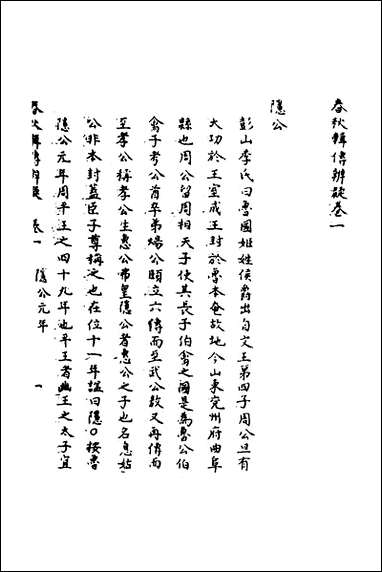 春秋輯傳辨疑卷一
隱公
彭山李氏曰魯國姬姓侯爵出自文王第四子周公旦有
大功於王室成王封於魯本奄故地今山東兗州府曲阜
縣也周公留周相天子使其長子伯禽之國是為魯公伯
禽子考公酋卒弟煬公熙立六傳而至武公敖又再傳而
至孝公稱孝公生惠公弗皇隱公者惠公之子也名息姑
公非本封蓋臣子尊稱之也在位十一年諡曰隱○按魯
隱公元年周平王之四十九年也平王者幽王之太子宜
春秋輯傳辨疑 卷一 隱公元年 一